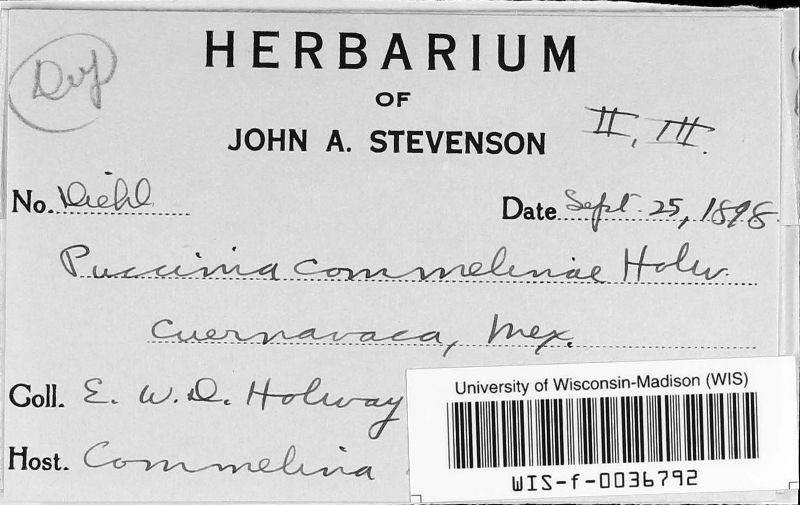 Dup
HERBARIUM
OF
JOHN A. STEVENSON
II, III.
No. Diehl
Date Sept. 25, 1898
Puccinia commelinae Holw.
Cuernavaca, Mex.
Coll. E. W. D. Holway
Host. Commelina
University of Wisconsin-Madison (WIS)
WIS-f-0036792